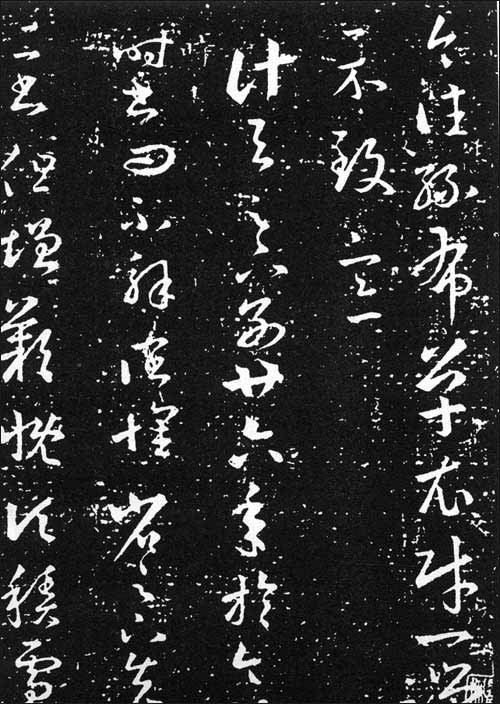 今往絲布單衣財一端
示致意
計與足下別廿六年於今
時書問不解闊懷省足下先
二書但增歎慨頃積雪